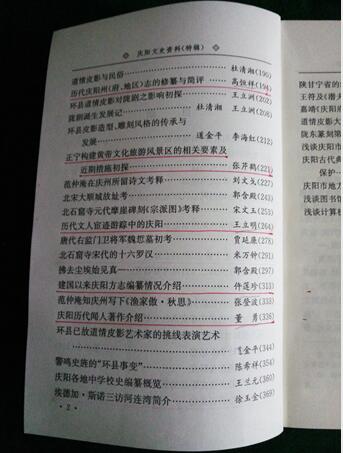 庆阳文史资料(特辑)
道情皮影与民俗 杜清湘(190)
历代庆阳州(府、地区)志的修纂与简评 高恒祥(194)
环县道情皮影对陇剧之影响初探 王立洲(202)
陇剧诞生发展记 杜清湘 王立洲(208)
环县皮影造型、雕刻风格的传承与
发展 道金平 李海红(212)
正宁构建黄帝文化旅游风景区的相关要素及
近期措施初探 张芹鹤(221)
范仲淹在庆州所留诗文考释 刘文戈(227)
北宋大顺城故址考 郭合殿(243)
北石窟寺元代摩崖碑刻《宗派图》考释 宋文玉(253)
历代文人宦迹游踪中的庆阳 王立明(264)
唐代右监门卫将军魏愻墓初考 贾延廉(278)
北石窟寺宋代的十六罗汉 米万钟(291)
拂去尘埃始见真 郭合殿(297)
建国以来庆阳方志编纂情况介绍 仵莲珍(313)
范仲淹知庆州写下《渔家傲·秋思》 张登波(333)
庆阳历代闻人著作介绍 董勇(336)
环县已故道情皮影艺术家的挑线表演艺术
道金平(344)
警鸣史族的“环县事变” 陈希祥(354)
庆阳各地中学校史编纂概览 王兰元(360)
埃德加·斯诺三访河连湾简介 徐玉金(369)
·2·
陕甘宁省的
王符及《潜夫
嘉靖《庆阳府
道情皮影大
陇东篆刻第
浅谈庆阳市
庆阳古代典
保护
庆阳市地方
浅谈图书馆
浅谈计算机